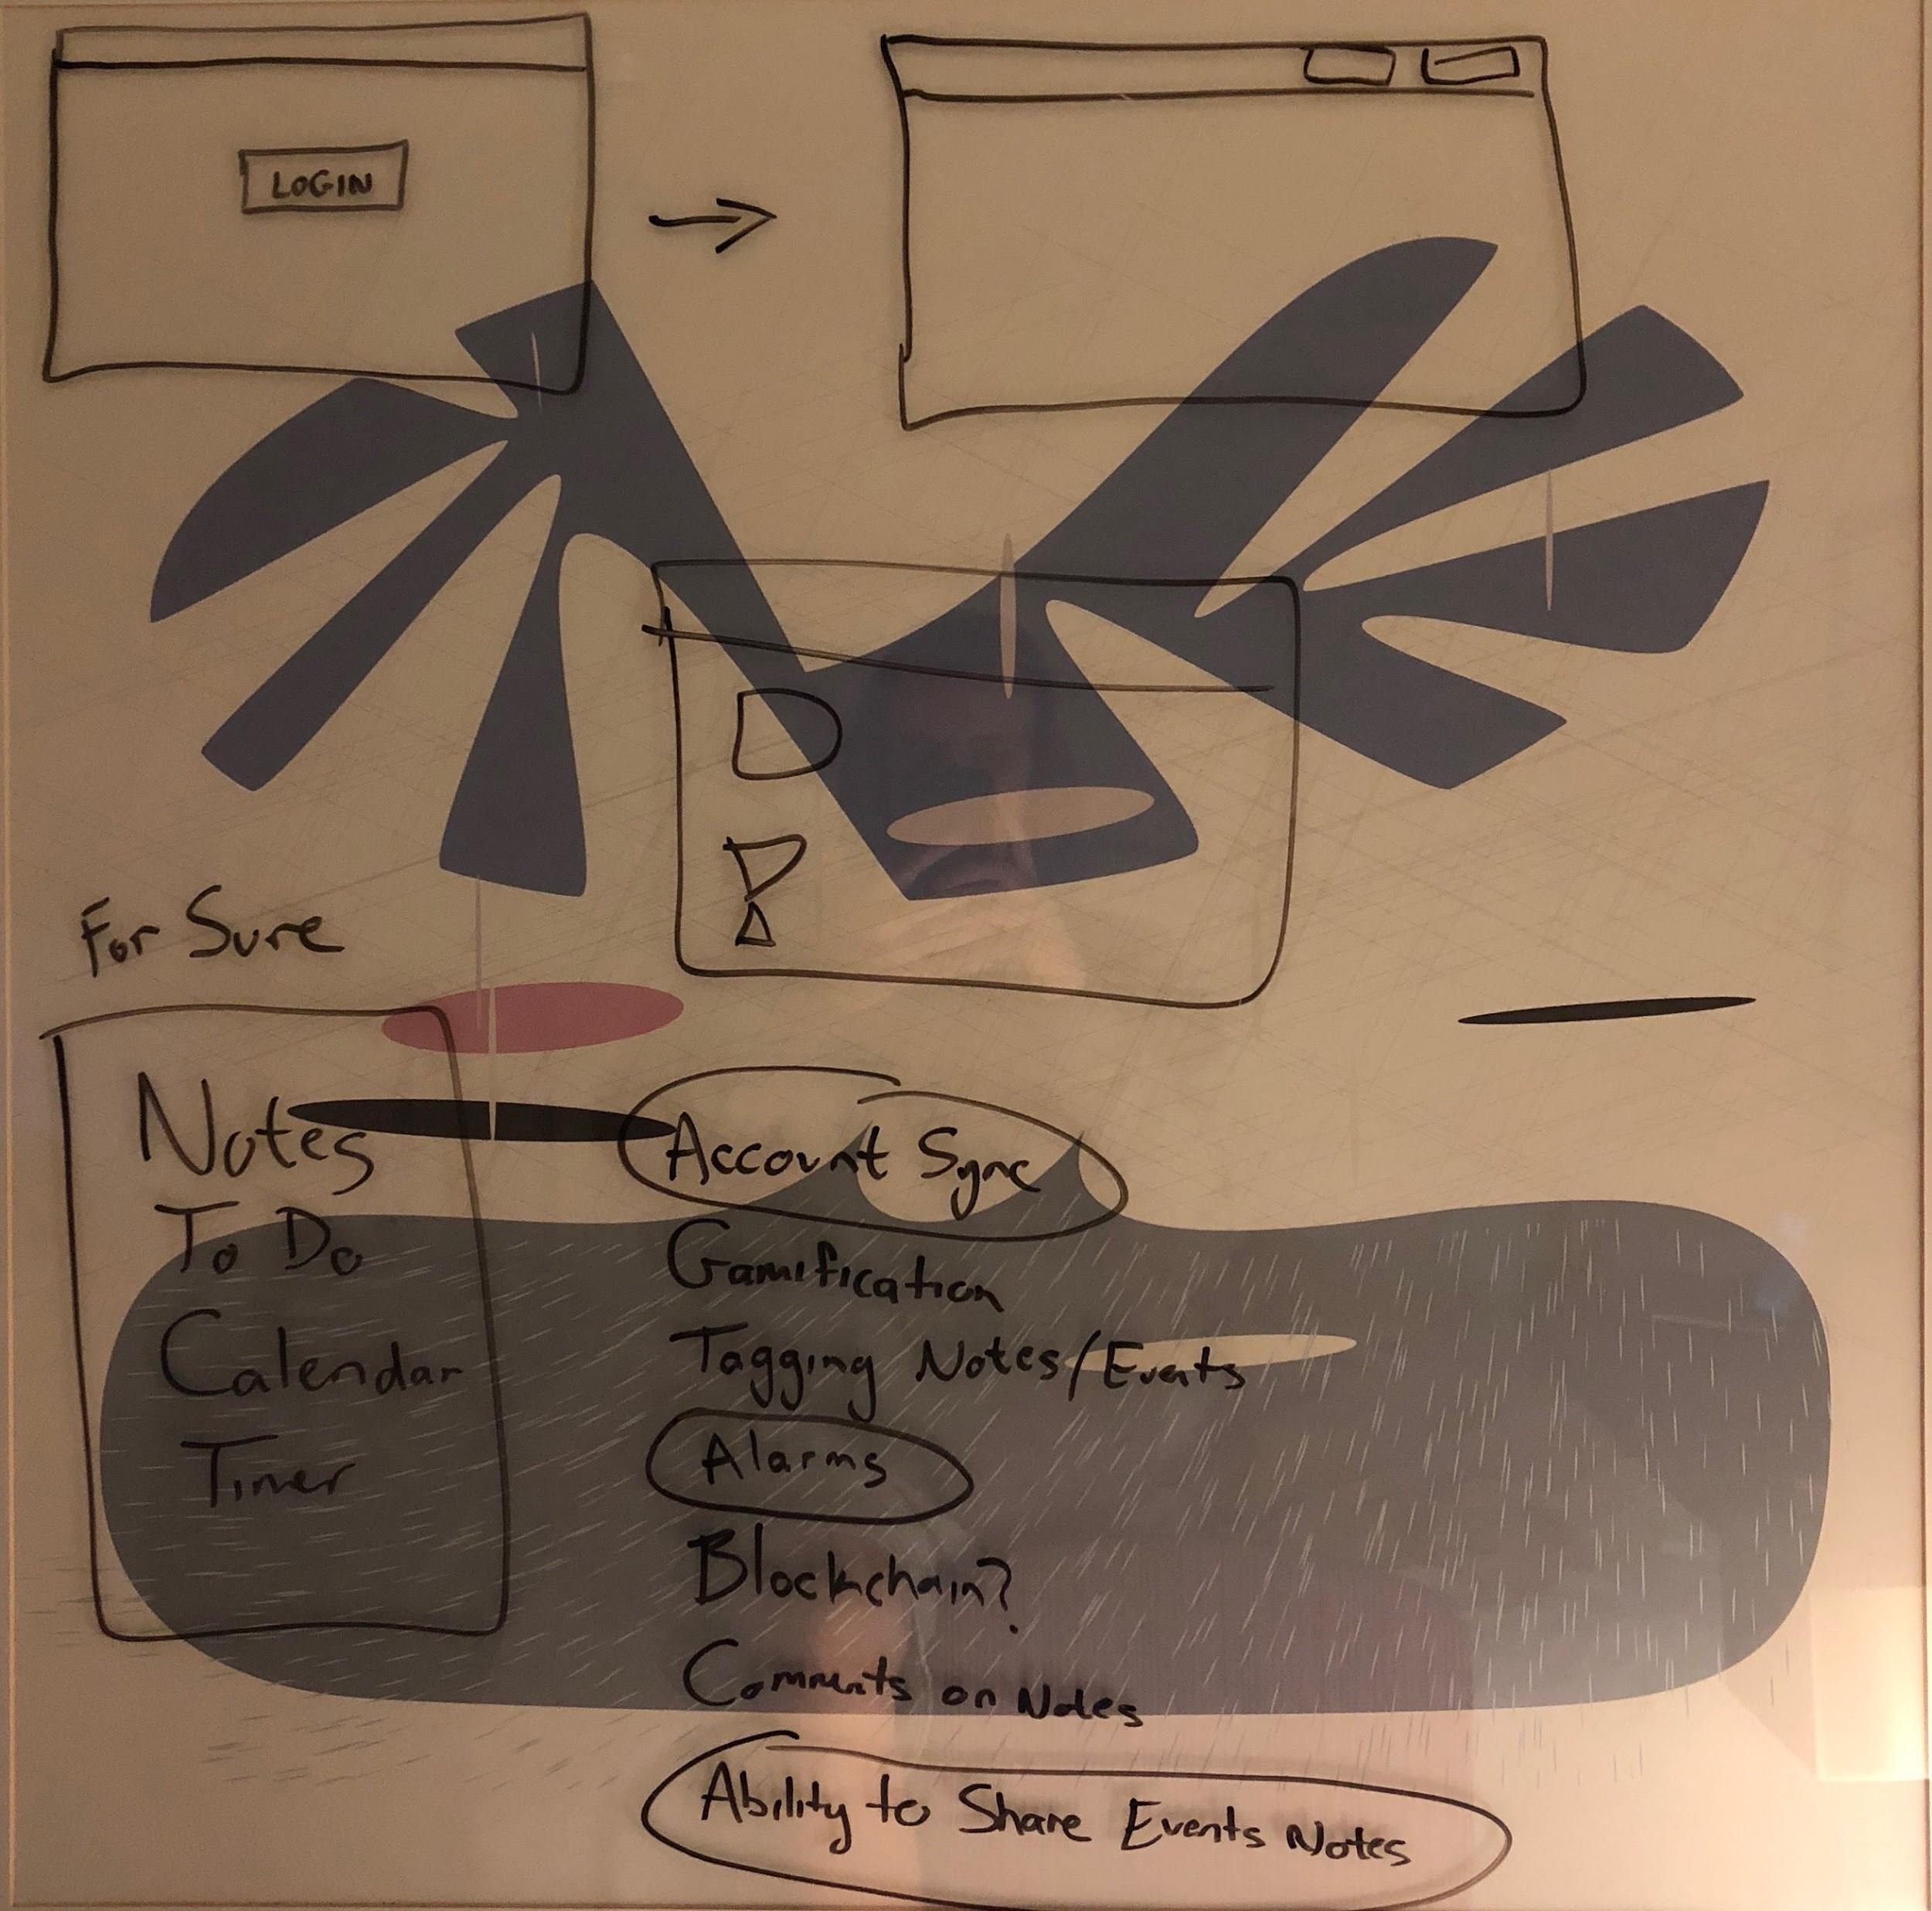 LOGIN
For Sure
Notes
To Do
Calendar
Timer
Account Sync
Gamification
Tagging Notes/Events
Alarms
Blockchain?
Comments on Notes
Ability to Share Events Notes